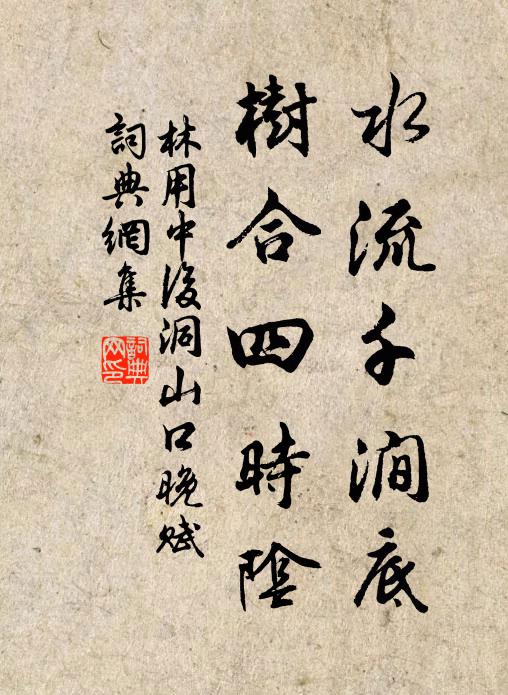 水流千澗底
樹合四時陰
林用中後洞山口晚賦
詞典網集
詞典網印